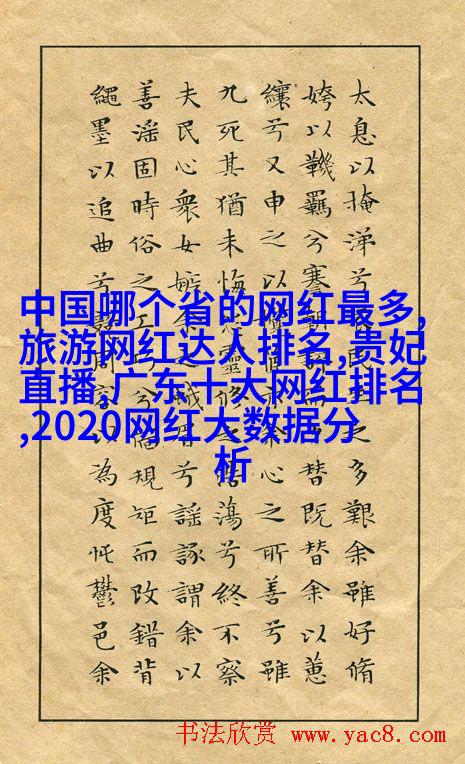 中国哪个省的网红最多,
旅游网红达人排名,贵妃
直播,广东十大网红排名
,2020网红大数据分
析
太息以掩涕兮民之多艱余雖好脩
姱以鞿羈兮謇朝替既替余以蕙
纕兮又申之以心之所善兮雖
九死其猶未悔浩蕩兮終不察
夫民心衆女嫉余之兮謠諑謂余以
善淫固時俗之工規矩而改錯背
繩墨以追曲兮為度忳鬱邑余
书法欣赏 www.yac8.com